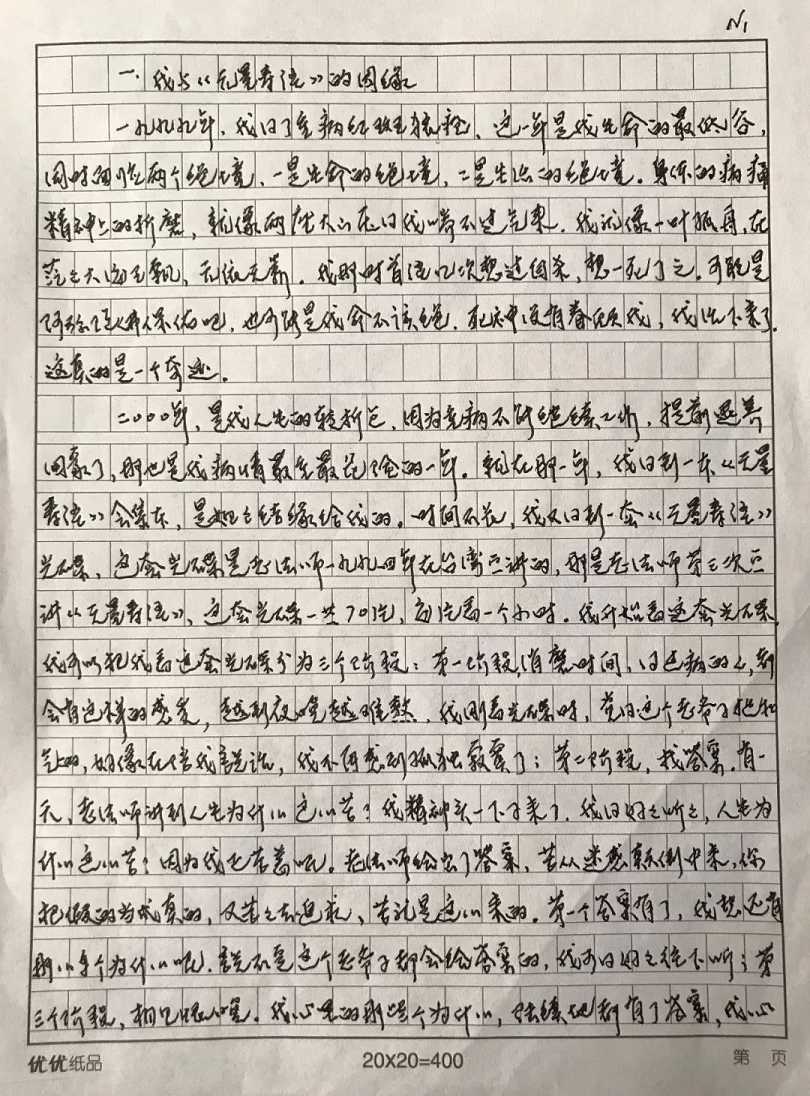 N1
一.我与《无量寿经》的因缘
一九九九年,我得了重病红斑狼疮、这一年是我生命的最低谷,
同时面临两个绝境,一是生命的绝境,二是生活的绝境.身体的病痛
精神上的折磨,就像两座大山压得我喘不过气来.我就像一叶孤舟,在
茫茫大海里飘,无依无靠.我那时曾经几次想过自杀,想一死了之.可能是
阿弥陀佛保佑吧,也可能是我命不该绝.死神没有眷顾我,我活下来了.
这真的是一个奇迹。
二000年,是我人生的转折点,因为患病不能继续工作,提前退养
回家了,那也是我病情最重最危险的一年。就在那一年,我得到一本《无量
寿经》会集本,是姐姐结缘给我的.时间不长,我又得到一套《无量寿经》
光碟,这套光碟是老法师一九九四年在台湾宣讲的,那是老法师第三次宣
讲《无量寿经》,这套光碟一共70片,每片看一个小时.我开始看这套光碟,
我可以把我看这套光碟分为三个阶段:第一阶段,消磨时间,得这病的人,都
会有这样的感觉,越到夜晚越难熬.我刚看光碟时,觉得这个老爷子挺和
气的,好像在陪我说话,我不再感到孤独寂寞了;第二阶段,找答案.有一
天,老法师讲到人生为什么这么苦?我精神头一下子来了.我得好好听听,人生为
什么这么苦?因为我也苦着呢.老法师给出了答案,苦从迷惑颠倒中来,你
把假的当成真的,又苦苦去追求,苦就是这么来的.第一个答案有了,我想还有
那么多个为什么呢.说不定这个老爷子都会给答案的,我可得好好往下听;第
三个阶段,相见恨晚.我心里的那些个为什么,陆续地都有了答案,我心
优优纸品
20X20=400
第 页